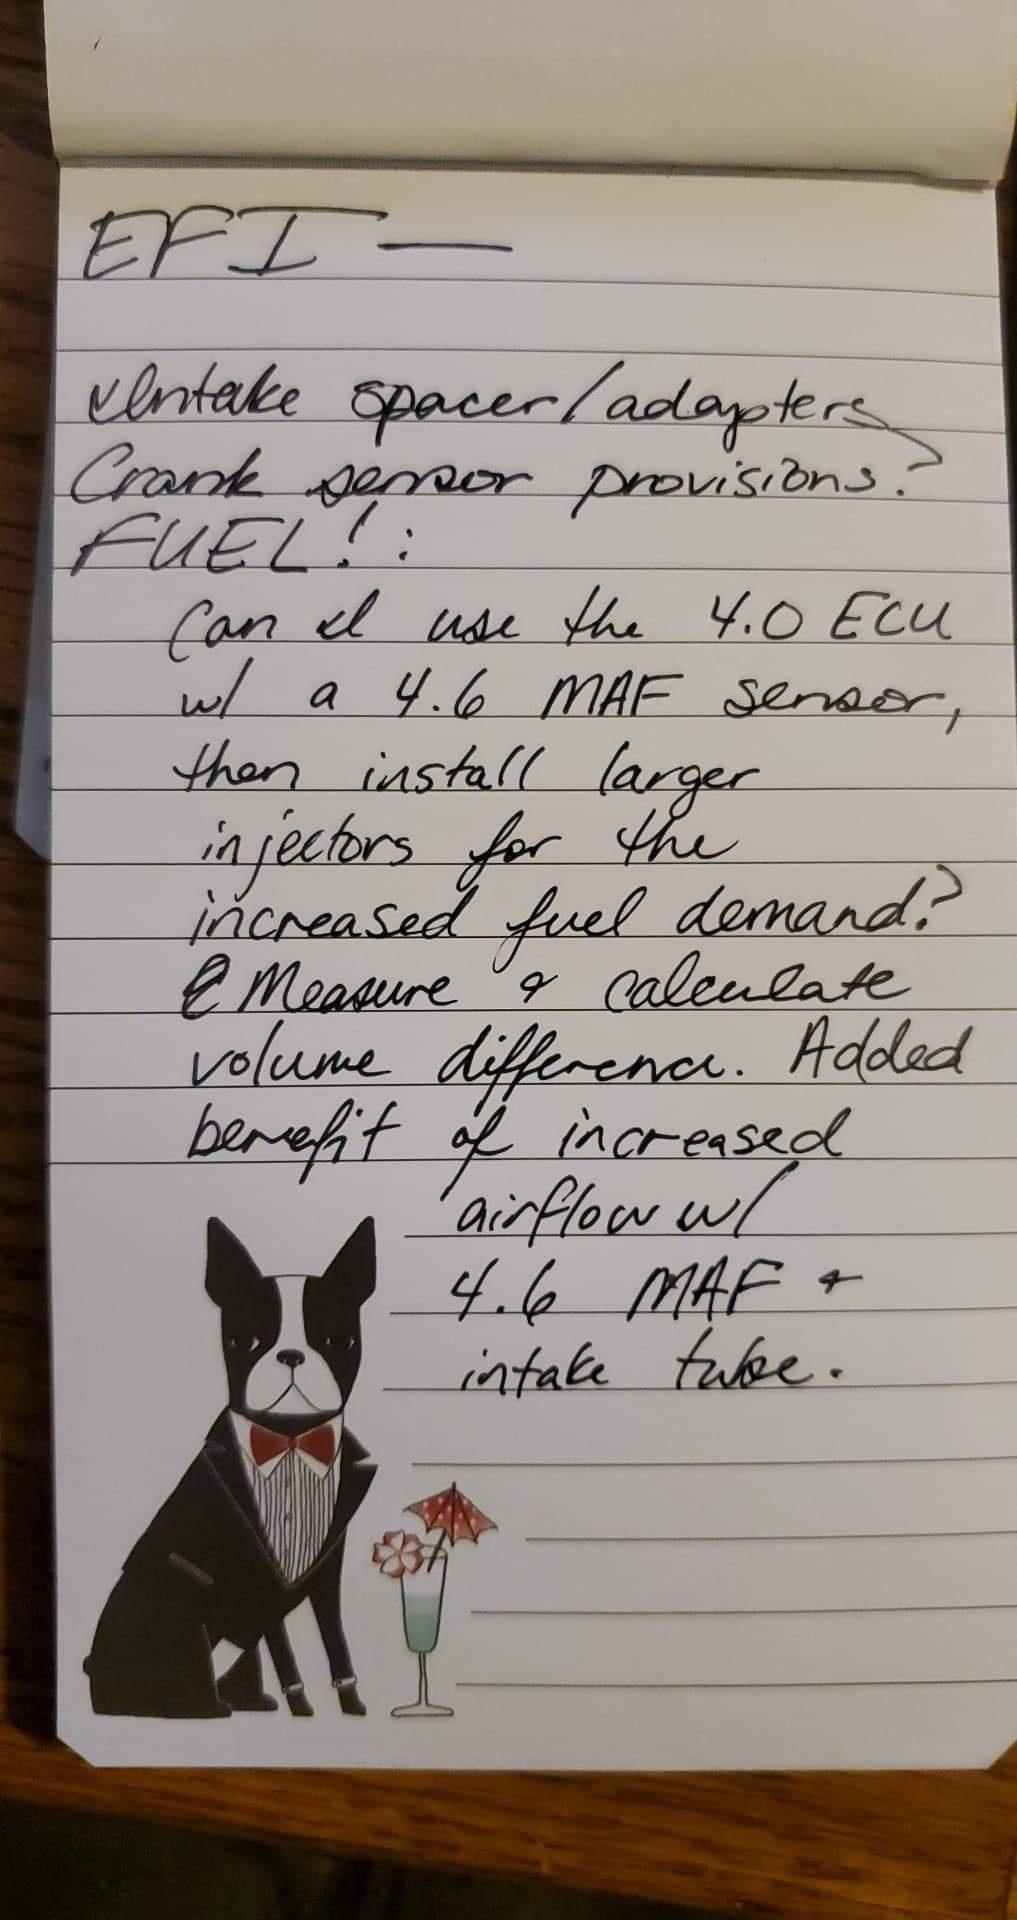 EFI —
Intake spacer/adapters?
Crank sensor provisions?
FUEL! :
Can I use the 4.0 ECU
w/ a 4.6 MAF sensor,
then install larger
injectors for the
increased fuel demand?
Measure & calculate
volume difference. Added
benefit of increased
airflow w/
4.6 MAF &
intake tube.